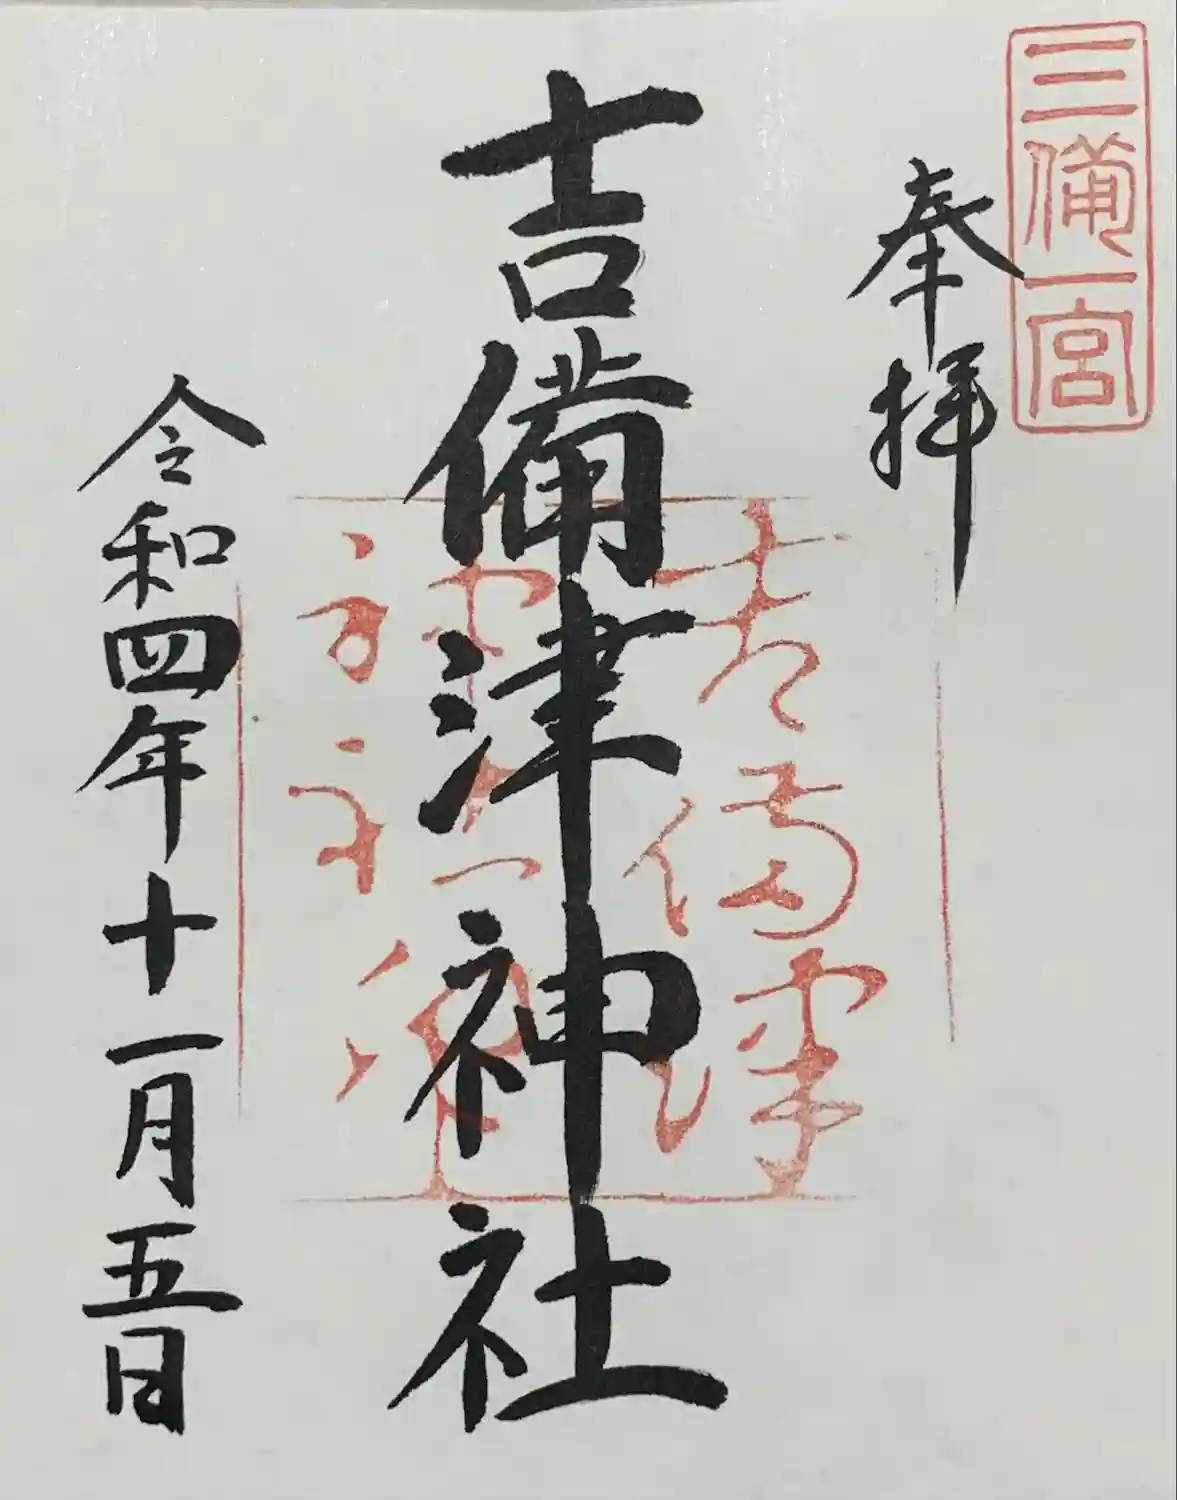 三備一宮
奉拝
吉備津神社
吉備津
令和四年十一月五日